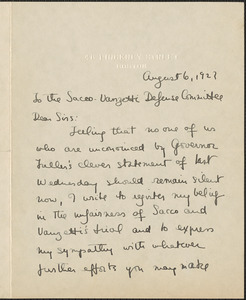 August 6, 1927
To the Sacco-Vanzetti Defense Committee
Dear Sirs:
Feeling that no one of us
who are unconvinced by Governor
Fuller's clever statement of last
Wednesday should remain silent
now, I write to register my belief
in the unfairness of Sacco and
Vanzetti's trial and to express
my sympathy with whatever
further efforts you may make